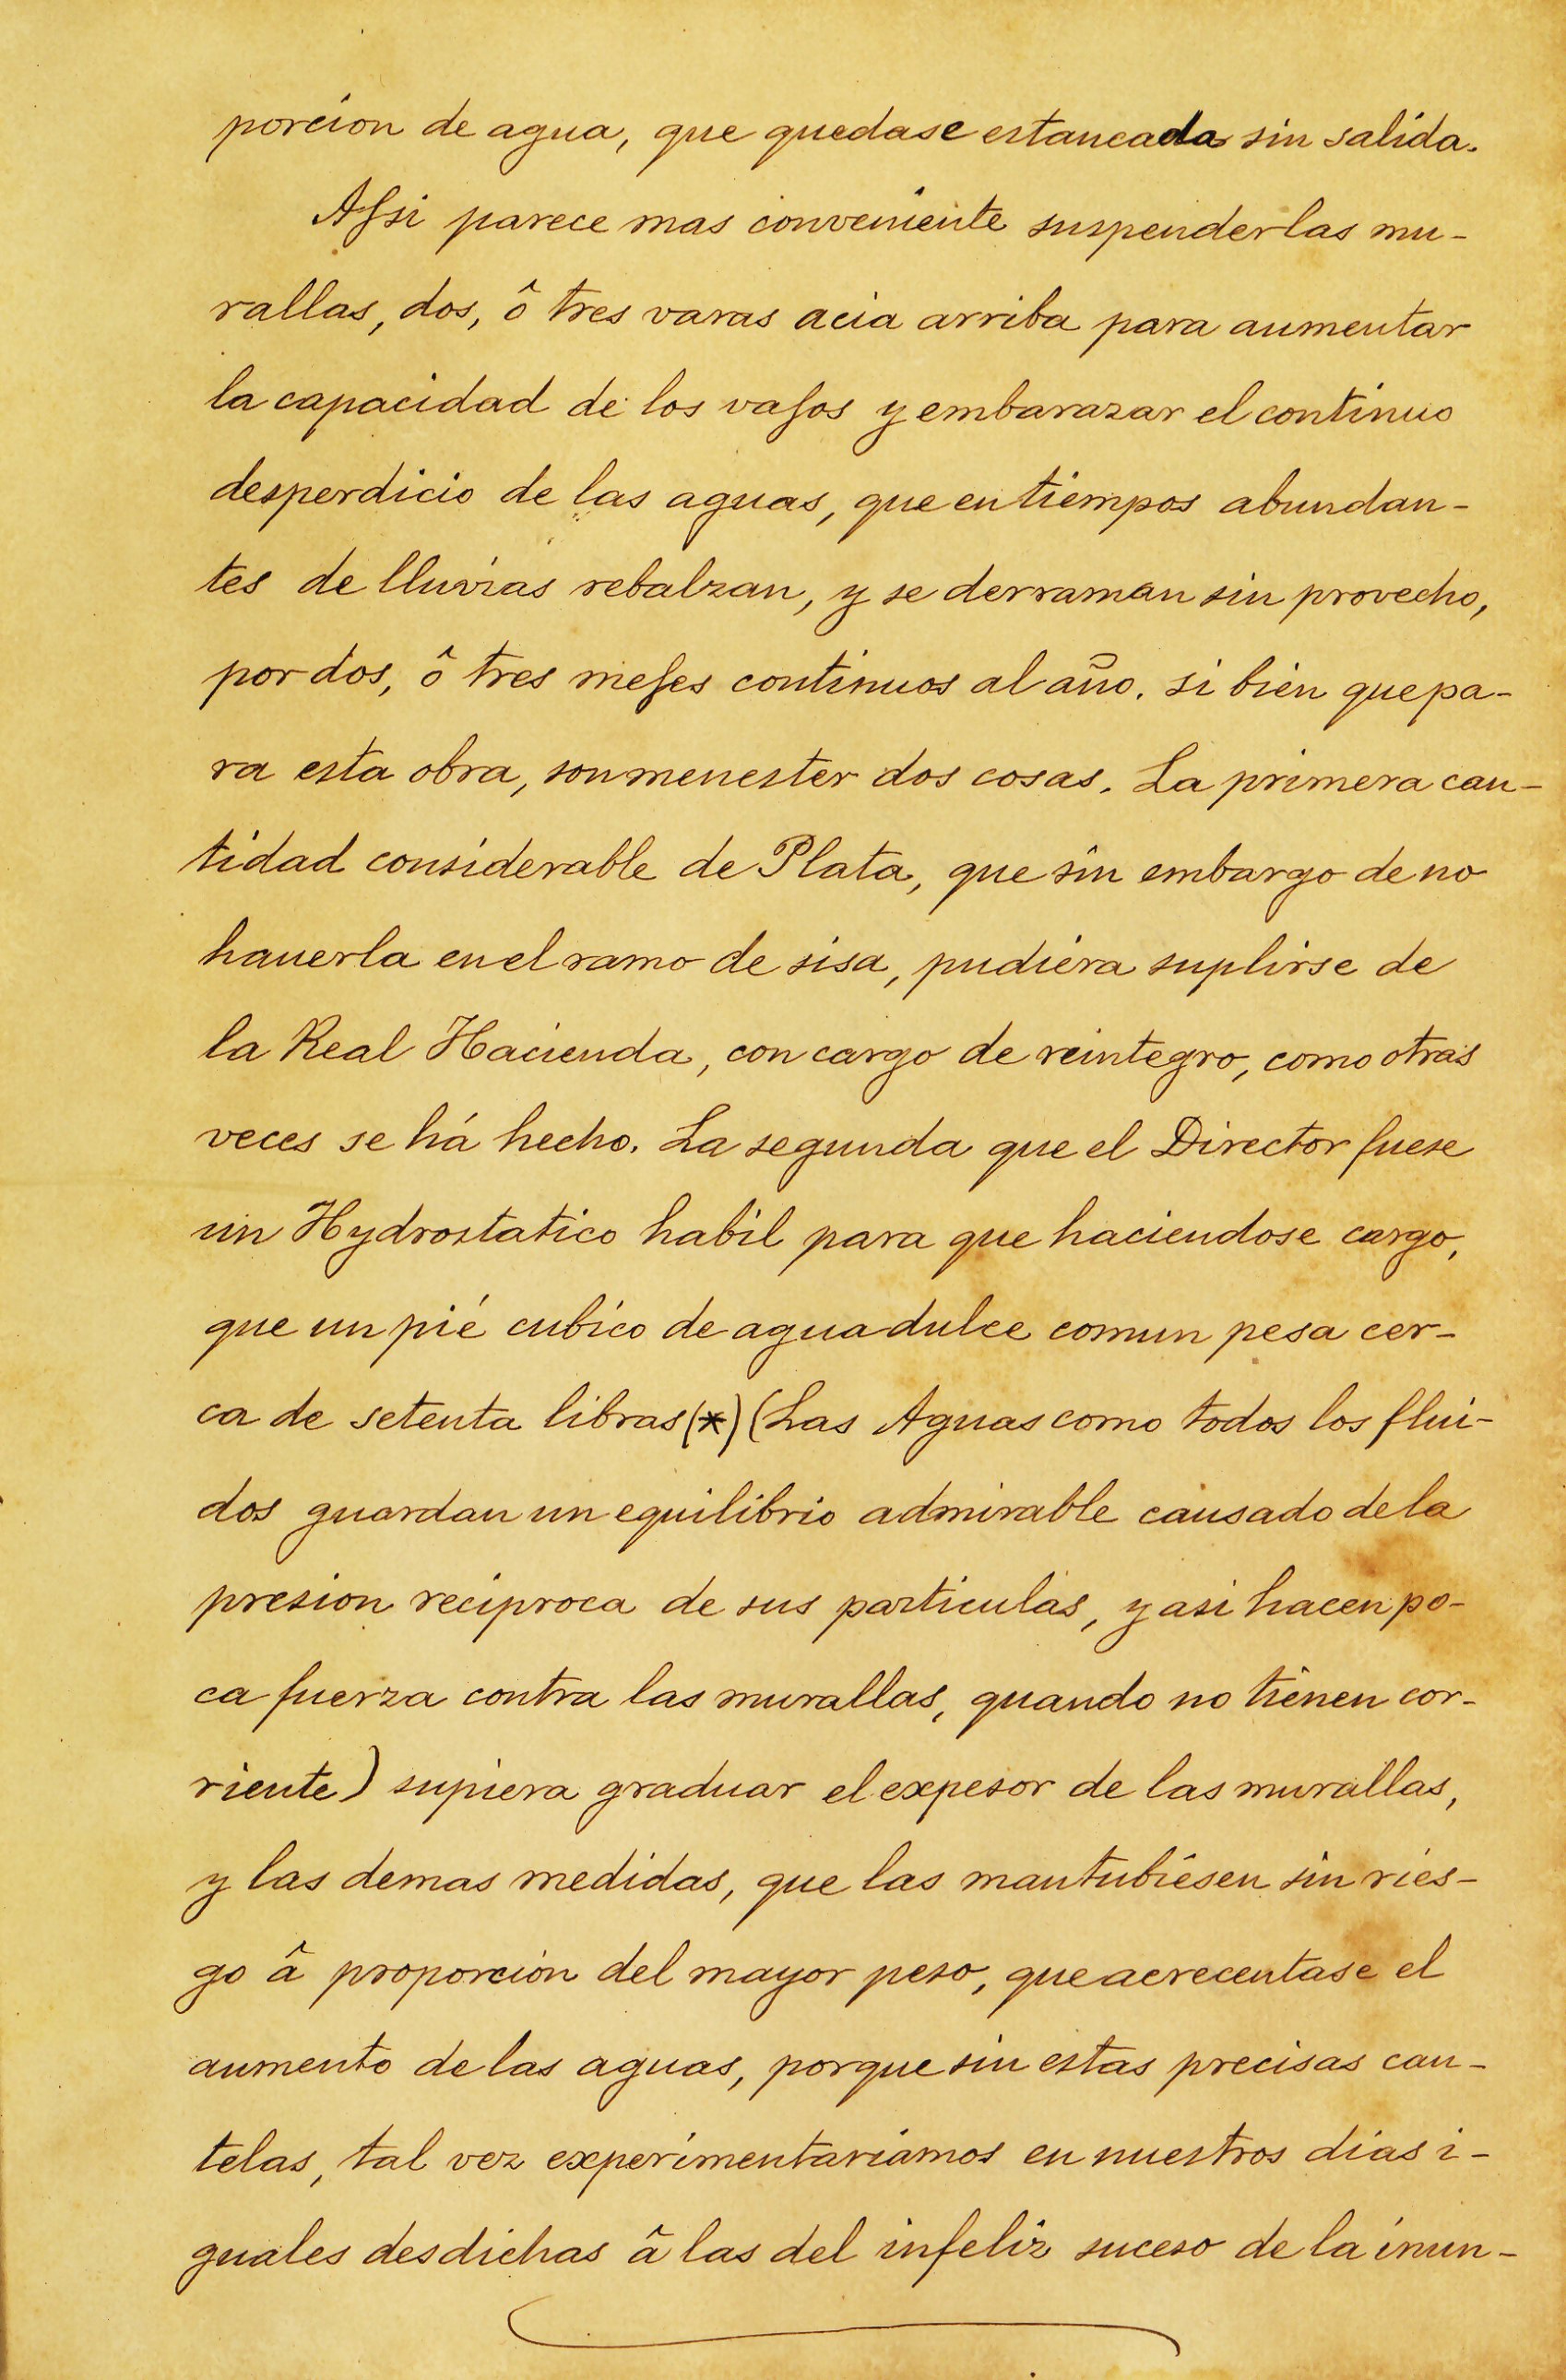 porcion de agua, que quedase estancada sin salida.
Assi parece mas conveniente suspender las mu-
rallas, dos, ô tres varas acia arriba para aumentar
la capacidad de los vasos y embarazar el continuo
desperdicio de las aguas, que en tiempos abundan-
tes de lluvias rebalzan, y se derraman sin provecho,
por dos, ô tres meses continuos al año. si bien que pa-
ra esta obra, son menester dos cosas. La primera can-
tidad considerable de Plata, que sin embargo de no
hauerla en el ramo de sisa, pudiera suplirse de
la Real Hacienda, con cargo de reintegro, como otras
veces se há hecho. La segunda que el Director fuese
un Hydrostatico habil para que haciendose cargo,
que un pié cubico de agua dulce comun pesa cer-
ca de setenta libras (*) (Las Aguas como todos los flui-
dos guardan un equilibrio admirable causado de la
presion reciproca de sus particulas, y asi hacen po-
ca fuerza contra las murallas, quando no tienen cor-
riente) supiera graduar el expesor de las murallas,
y las demas medidas, que las mantubiesen sin ries-
go â proporcion del mayor peso, que acrecentase el
aumento de las aguas, porque sin estas precisas cau-
telas, tal vez experimentariamos en nuestros dias i-
guales desdichas â las del infeliz suceso de la inun-